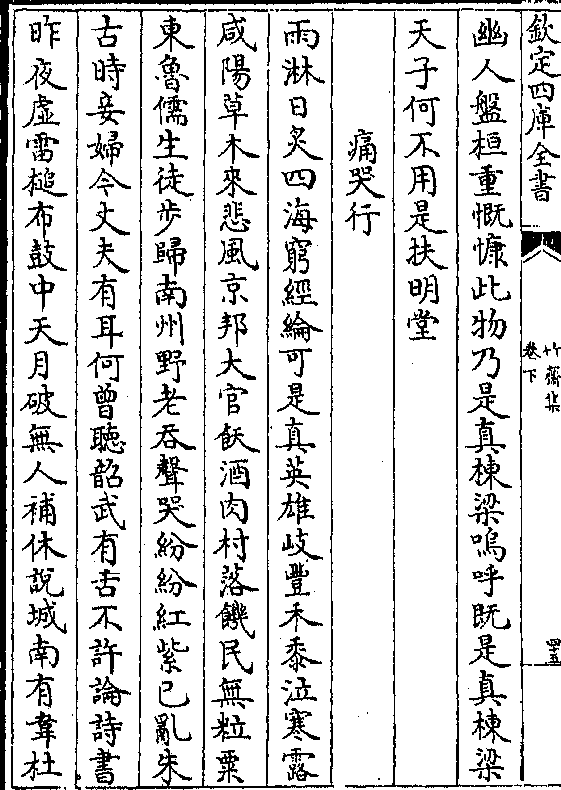 欽定四庫全書
竹齋集
卷下
四五
幽人盤桓重慨慷此物乃是真棟梁嗚呼既是真棟梁
天子何不用是扶明堂
痛哭行
雨淋日炙四海窮經綸可是真英雄岐豐禾黍泣寒露
咸陽草木來悲風京邦大官飫酒肉村落饑民無粒粟
東魯儒生徒歩歸南州野老吞聲哭紛紛紅紫已亂朱
古時妾婦今丈夫有耳何曾聽韶武有舌不許論詩書
昨夜虚雷槌布鼓中天月破無人補休說城南有韋杜